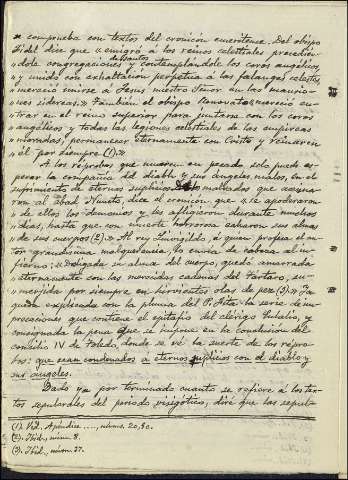 se comprueba con textos del cronicon emeritense. Del obispo
Fidel dice que «emigró á los reinos celestiales precedién-
de santos
»dole congregaciones y contemplándole los coros angélicos,
»y unido con exhaltación perpétua á las falanges celestes
»mereció unirse á Jesus nuestro Señor en las mansio-
»nes sidereas.» También el obispo Renovato «mereció en-
»trar en el reino superior para juntarse con los coros
»angélicos y todas las legiones celestiales de las empireas
»moradas, permanecer eternamente con Cristo y reinar en
»él por siempre (1).»
A los réprobos que mueren en pecado solo puede es-
perar la compañía del diablo y sus ángeles malos, en el
sufrimiento de eternos suplicios. De los malvados que asesina-
ron al Abad Nuncto, dice el cronicon, que «se apoderaron
»de ellos los demonios y les afligieron durante muchos
»dias, hasta que con muerte horrorosa echaron sus almas
»de sus cuerpos (2).» Al rey Leovigildo, á quien profesa el au-
tor grandísima malquerencia, lo envia de cabeza al in-
fierno: «Dejada su alma del cuerpo, quedó amarrada
»eternamente con las merecidas cadenas del Tártaro, su-
»mergida por siempre en hirvientes olas de pez (3).» Ya
queda explicada con la pluma del P. Fita la serie de im-
precaciones que contiene el epitafio del clérigo Eulalio, y
consignada la pena que se impone en la conclusión del
concilio IV de Toledo, donde se vé la suerte de los répro-
bos: que sean condenados á eternos suplicios con el diablo y
sus ángeles.
Dado ya por terminado cuanto se refiere á los tex-
tos sepulcrales del período visigótico, diré que las sepul-
(1). Vid. Apéndice ...., núms. 20, 30.
(2). Ibid., núm. 8.
(3). Ibid., núm. 27.